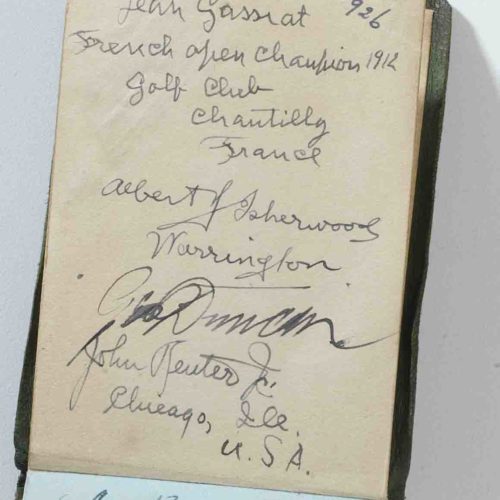 Jean Gassiat
926
French open Champion 1912
Golf Club
Chantilly
France
Albert J Isherwood
Warrington
Geo Duncan
John Reuter Jr.
Chicago, Ill.
U.S.A.